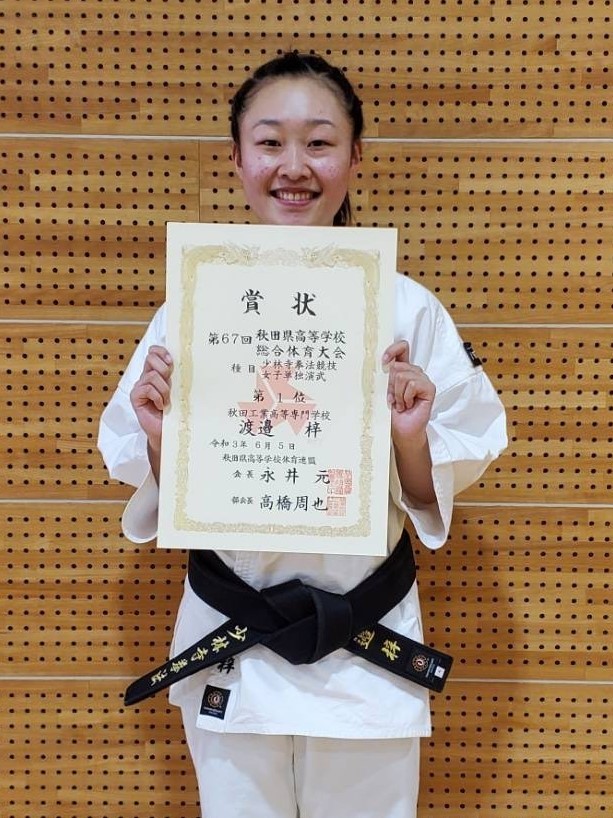 賞状
第67回 秋田県高等学校
総合体育大会
種目 少林寺拳法競技
女子単独演武
第1位
秋田工業高等専門学校
渡邉 梓
令和3年6月5日
秋田県高等学校体育連盟
会長 永井 元
部会長 高橋周也
少林寺拳法
邉 梓
梓